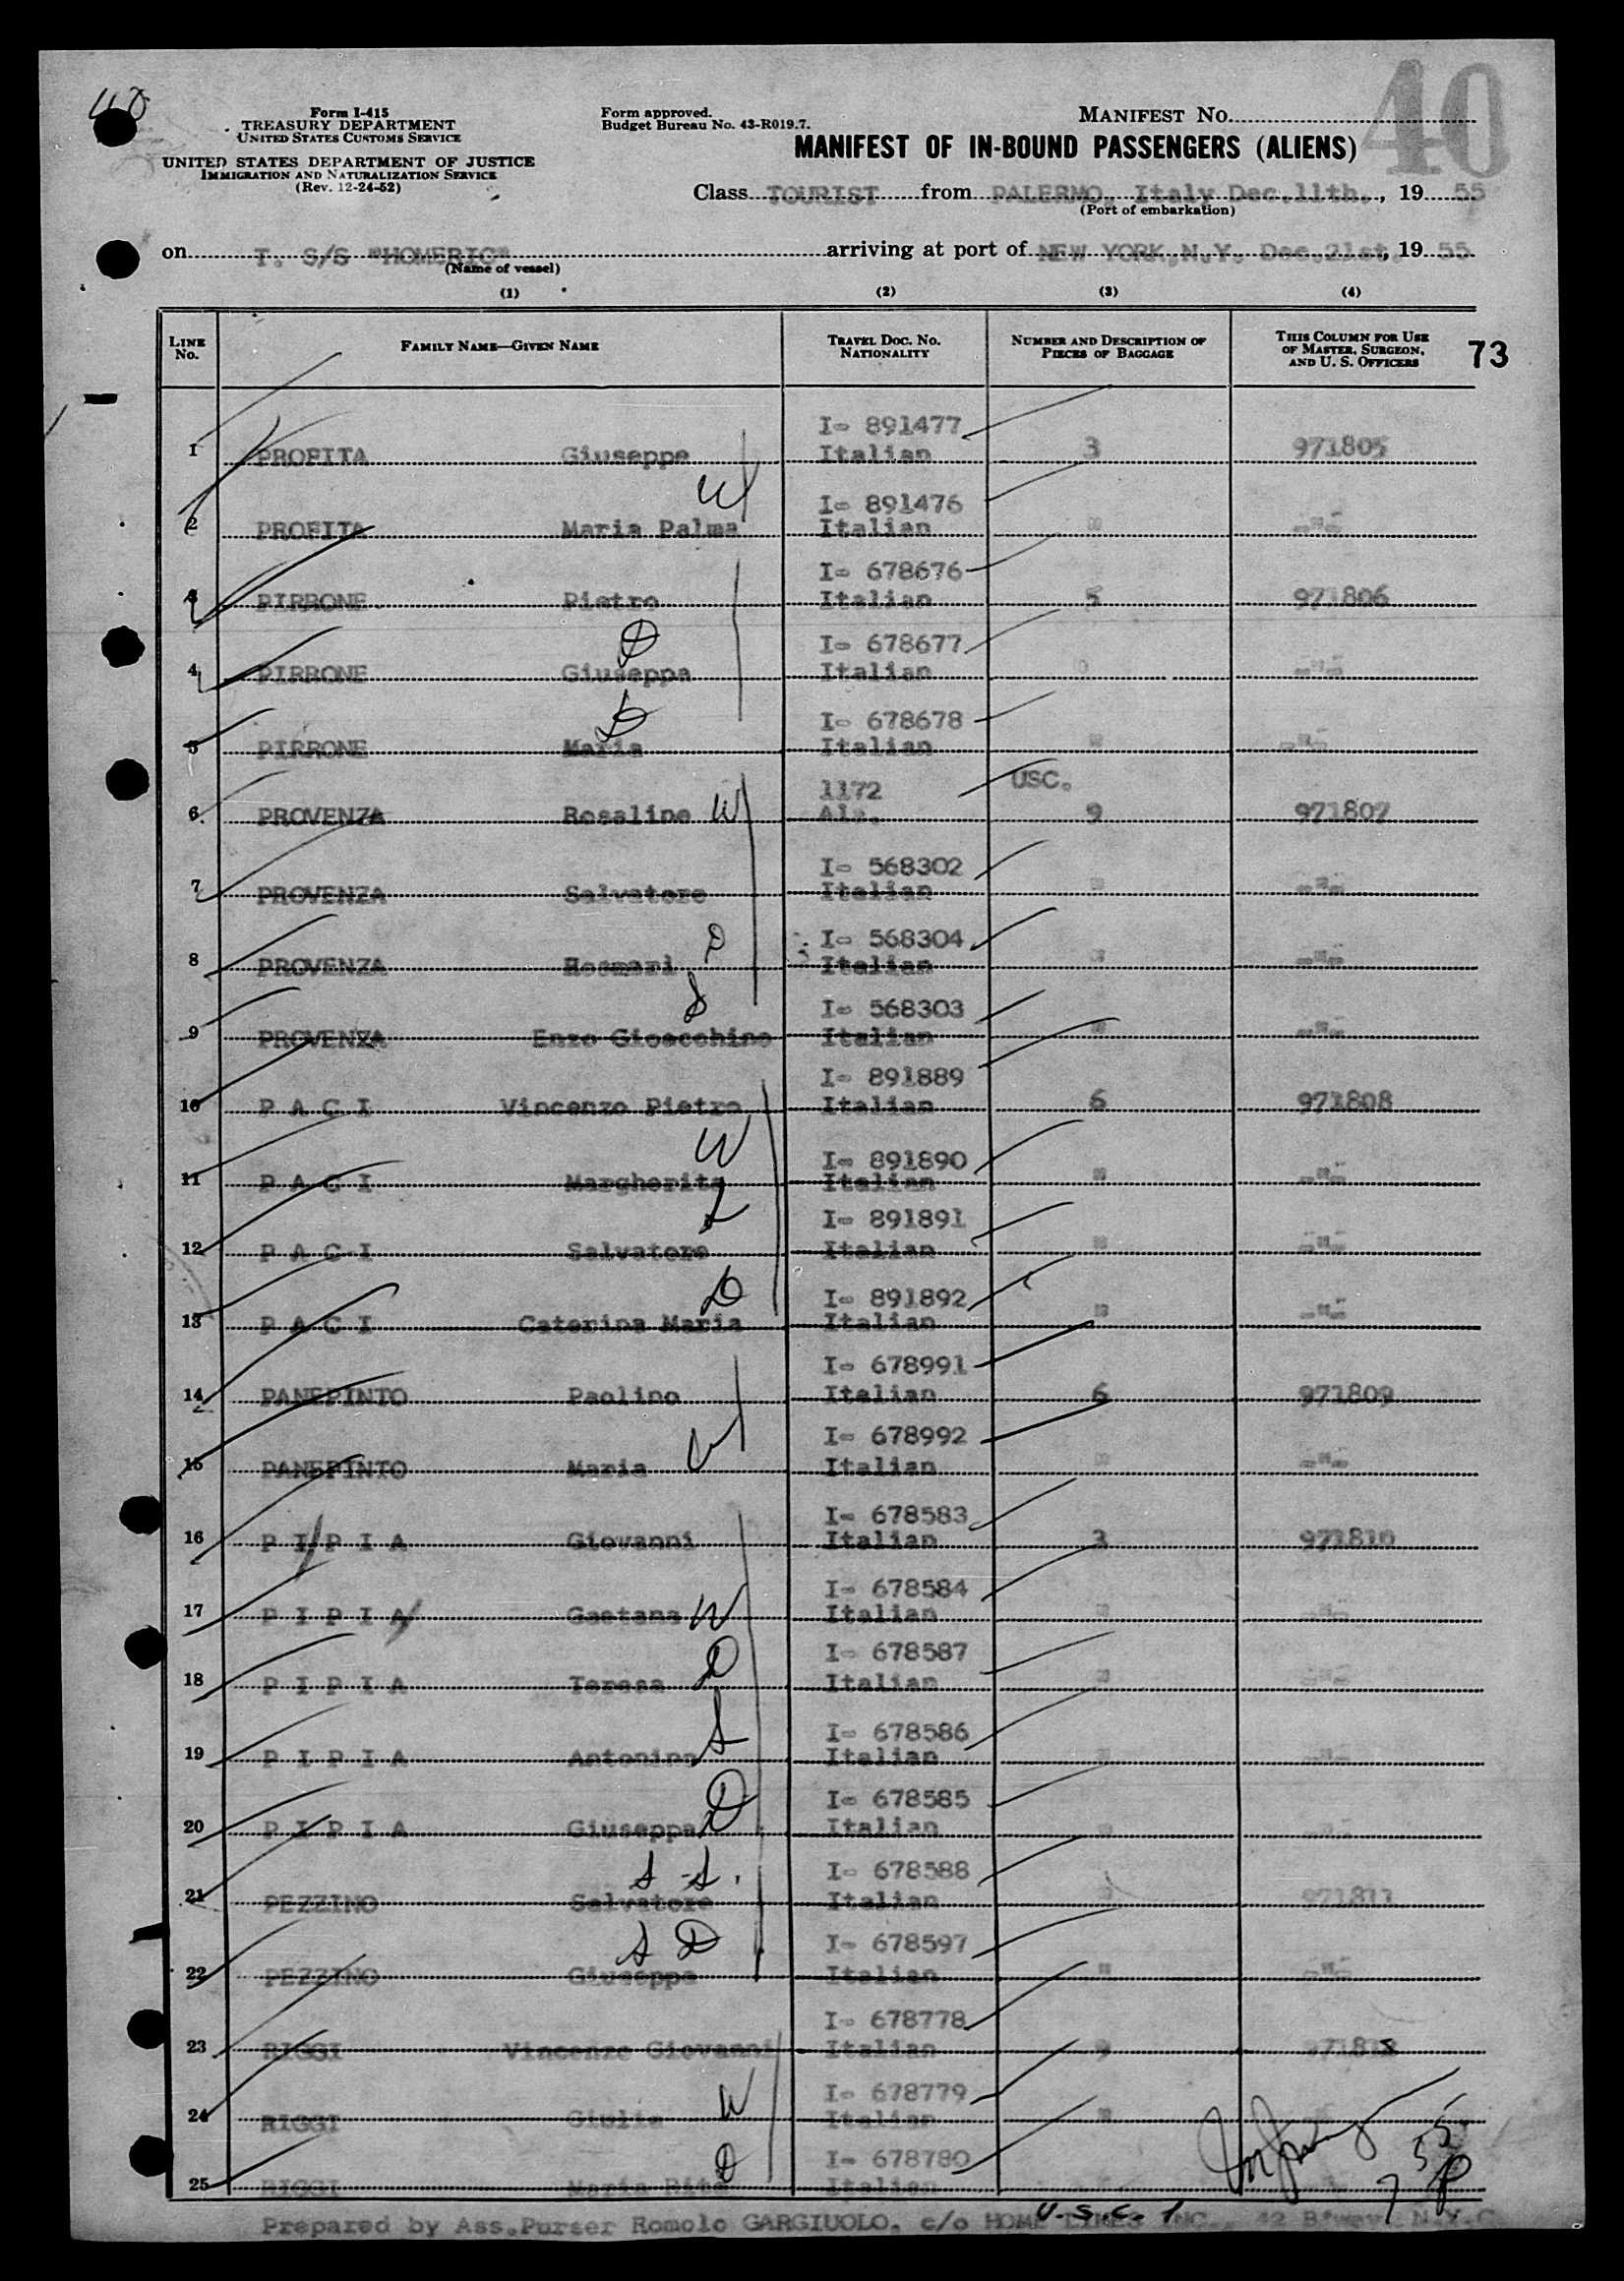 40
Form I-415
TREASURY DEPARTMENT
UNITED STATES CUSTOMS SERVICE
UNITED STATES DEPARTMENT OF JUSTICE
IMMIGRATION AND NATURALIZATION SERVICE
(Rev. 12-24-52)
Form approved.
Budget Bureau No. 43-R019.7.
MANIFEST NO.
40
MANIFEST OF IN-BOUND PASSENGERS (ALIENS)
Class TOURIST from PALERMO, Italy Dec.11th., 19 55
(Port of embarkation)
on T. S/S "HOMERIC" arriving at port of NEW YORK,N.Y. Dec.21st, 19 55
(Name of vessel)
(1) (2) (3) (4)
LINE No. FAMILY NAME—GIVEN NAME TRAVEL DOC. NO. NATIONALITY NUMBER AND DESCRIPTION OF PIECES OF BAGGAGE THIS COLUMN FOR USE OF MASTER, SURGEON, AND U. S. OFFICERS 73
I- 891477
1 PROFITA Giuseppe Italian 3 971805
W I- 891476
2 PROFITA Maria Palma Italian " -"-
I- 678676
3 PIRRONE Pietro Italian 5 971806
D I- 678677
4 PIRRONE Giuseppa Italian " -"-
D I- 678678
5 PIRRONE Maria Italian " -"-
1172 USC.
6 PROVENZA Rosaline W 9 971807
I- 568302
7 PROVENZA Salvatore Italian " -"-
D I- 568304
8 PROVENZA Rosmari Italian " -"-
S I- 568303
9 PROVENZA Enzo Gioacchino Italian " -"-
I- 891889
10 P A C I Vincenzo Pietro Italian 6 971808
W I- 891890
11 P A C I Margherita Italian " -"-
S I- 891891
12 P A C I Salvatore Italian " -"-
D I- 891892
13 P A C I Caterina Maria Italian " -"-
I- 678991
14 PANEPINTO Paolino Italian 6 971809
W I- 678992
15 PANEPINTO Maria Italian " -"-
I- 678583
16 P I P I A Giovanni Italian 3 971810
I- 678584
17 P I P I A Gaetana W Italian " -"-
I- 678587
18 P I P I A Teresa D Italian " -"-
I- 678586
19 P I P I A Antonino S Italian " -"-
I- 678585
20 P I P I A Giuseppa D Italian " -"-
S -S. I- 678588
21 PEZZINO Salvatore Italian 971811
S D I- 678597
22 PEZZINO Giuseppa Italian " -"-
I- 678778
23 RIGGI Vincenzo Giovanni Italian 9
W I- 678779
24 RIGGI Giulia Italian "
D I- 678780
25 RIGGI Maria Rita Italian
7 55 P
U.S.C. 1
Prepared by Ass.Purser Romolo GARGIUOLO. c/o HOME LINES INC., 42 B'way. N.Y.C.